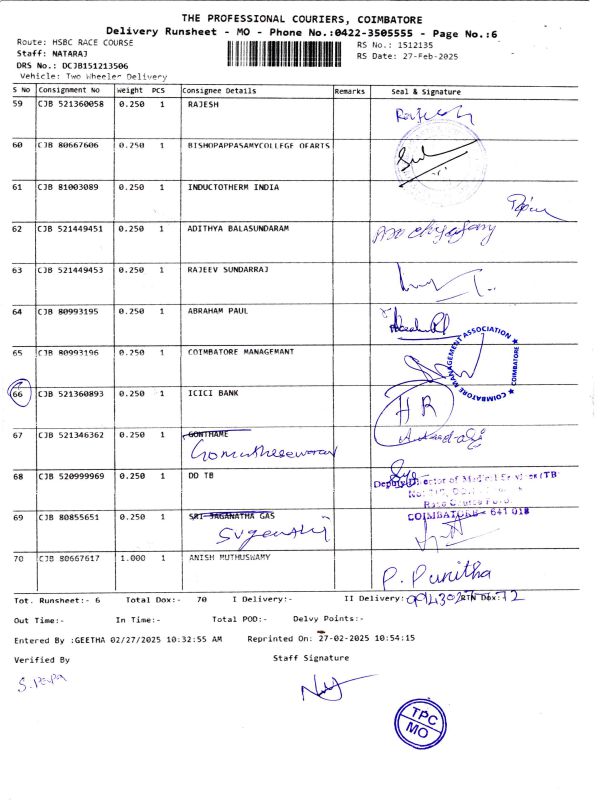 THE PROFESSIONAL COURIERS, COIMBATORE
Delivery Runsheet - MO - Phone No.:0422-3505555 - Page No.:6
Route: HSBC RACE COURSE
RS No.: 1512135
Staff: NATARAJ
RS Date: 27-Feb-2025
DRS No.: DCJB151213506
Vehicle: Two Wheeler Delivery
S No Consignment No Weight PCS Consignee Details Remarks Seal & Signature
59 CJB 521360058 0.250 1 RAJESH
Rajesh
60 CJB 80667606 0.250 1 BISHOPAPPASAMYCOLLEGE OFARTS
61 CJB 81003089 0.250 1 INDUCTOTHERM INDIA
62 CJB 521449451 0.250 1 ADITHYA BALASUNDARAM
63 CJB 521449453 0.250 1 RAJEEV SUNDARRAJ
64 CJB 80993195 0.250 1 ABRAHAM PAUL
65 CJB 80993196 0.250 1 COIMBATORE MANAGEMANT
COIMBATORE MANAGEMENT ASSOCIATION
66 CJB 521360893 0.250 1 ICICI BANK
HR
67 CJB 521346362 0.250 1 GONTHAME
68 CJB 520999969 0.250 1 DD TB
Deputy Director of Medical Services (TB
Race Course
COIMBATORE - 641 018
69 CJB 80855651 0.250 1 SRI JAGANATHA GAS
70 CJB 80667617 1.000 1 ANISH MUTHUSWAMY
P. Punitha
Tot. Runsheet:- 6 Total Dox:- 70 I Delivery:- II Delivery:- RTN Dox:-
Out Time:- In Time:- Total POD:- Delvy Points:-
Entered By :GEETHA 02/27/2025 10:32:55 AM Reprinted On: 27-02-2025 10:54:15
Verified By Staff Signature
S. PAPA
TPC
MO